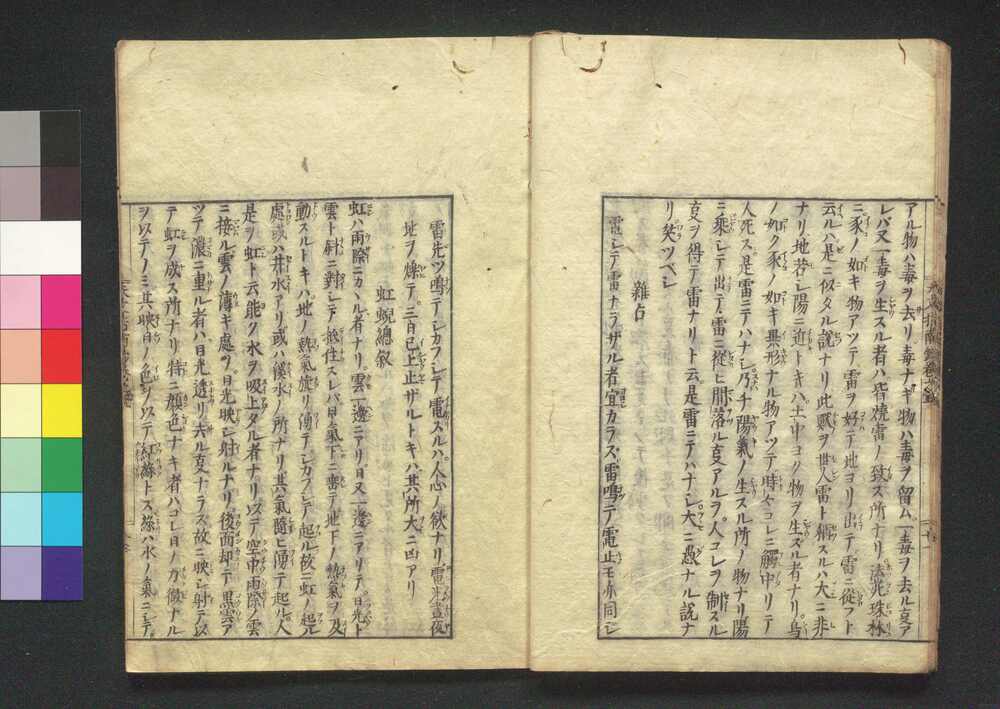 アル物ハ毒ヲ去リ毒ナキ物ハ毒ヲ留ム毒ヲ去ル叓ア
レバ又毒ヲ生スル者ハ皆燒雷ノ致ス所ナリ法苑珠林
ニ豕ノ如キ物アツテ雷ヲ好テ地ヨリ出テ雷ニ從フト
云ルハ是ニ似タル説ナリ此獸ヲ世人雷ト稱スルハ大ニ非
ナリ地若シ陽ニ迫トキハ土中ヨク物ヲ生ズル者ナリ
ノ如ク豕ノ如キ異形ナル物アツテ時々コレニ觸中リテ
人死ス是雷ニテハナシ乃チ陽氣ノ生スル所ノ物ナリ陽
ニ乘シテ出テ雷ニ從ヒ間落ル叓アルヲ人コレヲ制スル
叓ヲ得テ雷ナリト云是雷ニテハナシ大ニ愚ナル説ナ
リ笑ツベシ
雜占
電シテ雷ナラザル者宜カラス雷鳴テ電止モ亦同シ
雷先ツ鳴テシカフシテ電スルハ人心ノ欲ナリ電光晝夜
地ヲ爍テ三日已上止ザルトキハ其所大ニ凶アリ
虹蜺總叙
虹ハ雨際ニカヽル者ナリ雲一邊ニアリ日又一邊ニアリテ日光ト
雲ト斜ニ對シテ住スレバ日氣下ニ地下ノ熱氣ヲ及
動スルトキハ地ノ熱氣旋リ湧テシカフシテ起ル故ニ虹ノ起ル
處或ハ井水アリ或ハ溪水ノ所ナリ其氣隨ヒ湧テ起ル人
是ヲ虹ト云能ク水ヲ吸上タル者ナリ以テ空中雨際ノ雲
ニ接ル雲ノ薄キ處ヲ日光映シ射ルナリ後面却テ黒雲ア
ツテ濃ニ重ル者ハ日光透リ去ル叓ナラス故ニ映シ射テ以
テ虹ヲ成ス所ナリ特ニ顔色ナキ者ハコレ日ノ力微ナル
ヲ以テノミ其映日ノ色ヲ以テ紅綠トス綠ハ水ノ氣ニシテ